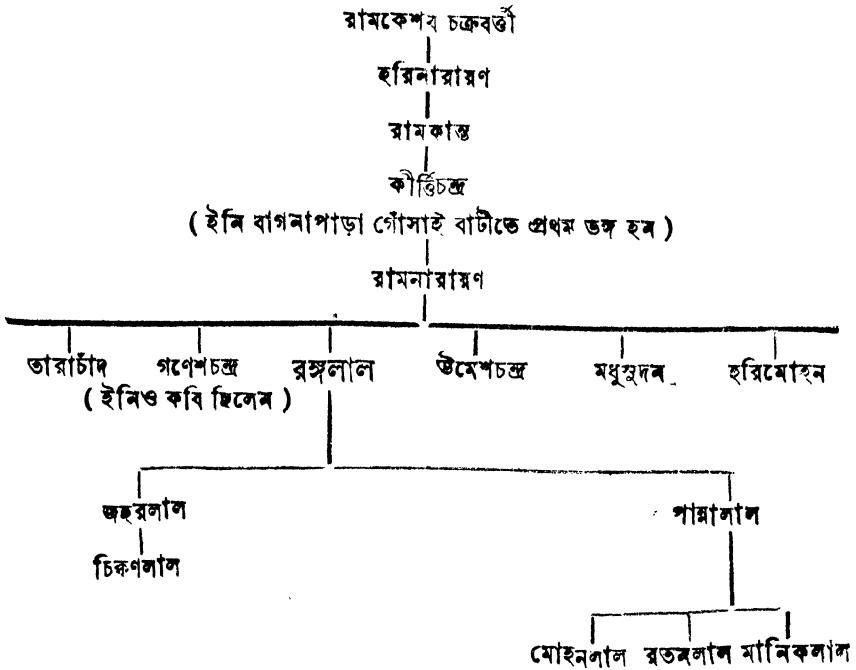 রামকেশব চক্রবর্ত্তী
হরিনারায়ণ
রামকান্ত
কীর্ত্তিচন্দ্র
( ইনি বাগনাপাড়া গোঁসাই বাটীতে প্রথম ভঙ্গ হন )
রামনারায়ণ
তারাচাঁদ গণেশচন্দ্র রঙ্গলাল উমেশচন্দ্র মধুসূদন হরিমোহন
( ইনিও কবি ছিলেন )
জহরলাল পান্নালাল
চিকণলাল
মোহনলাল রতনলাল মানিকলাল